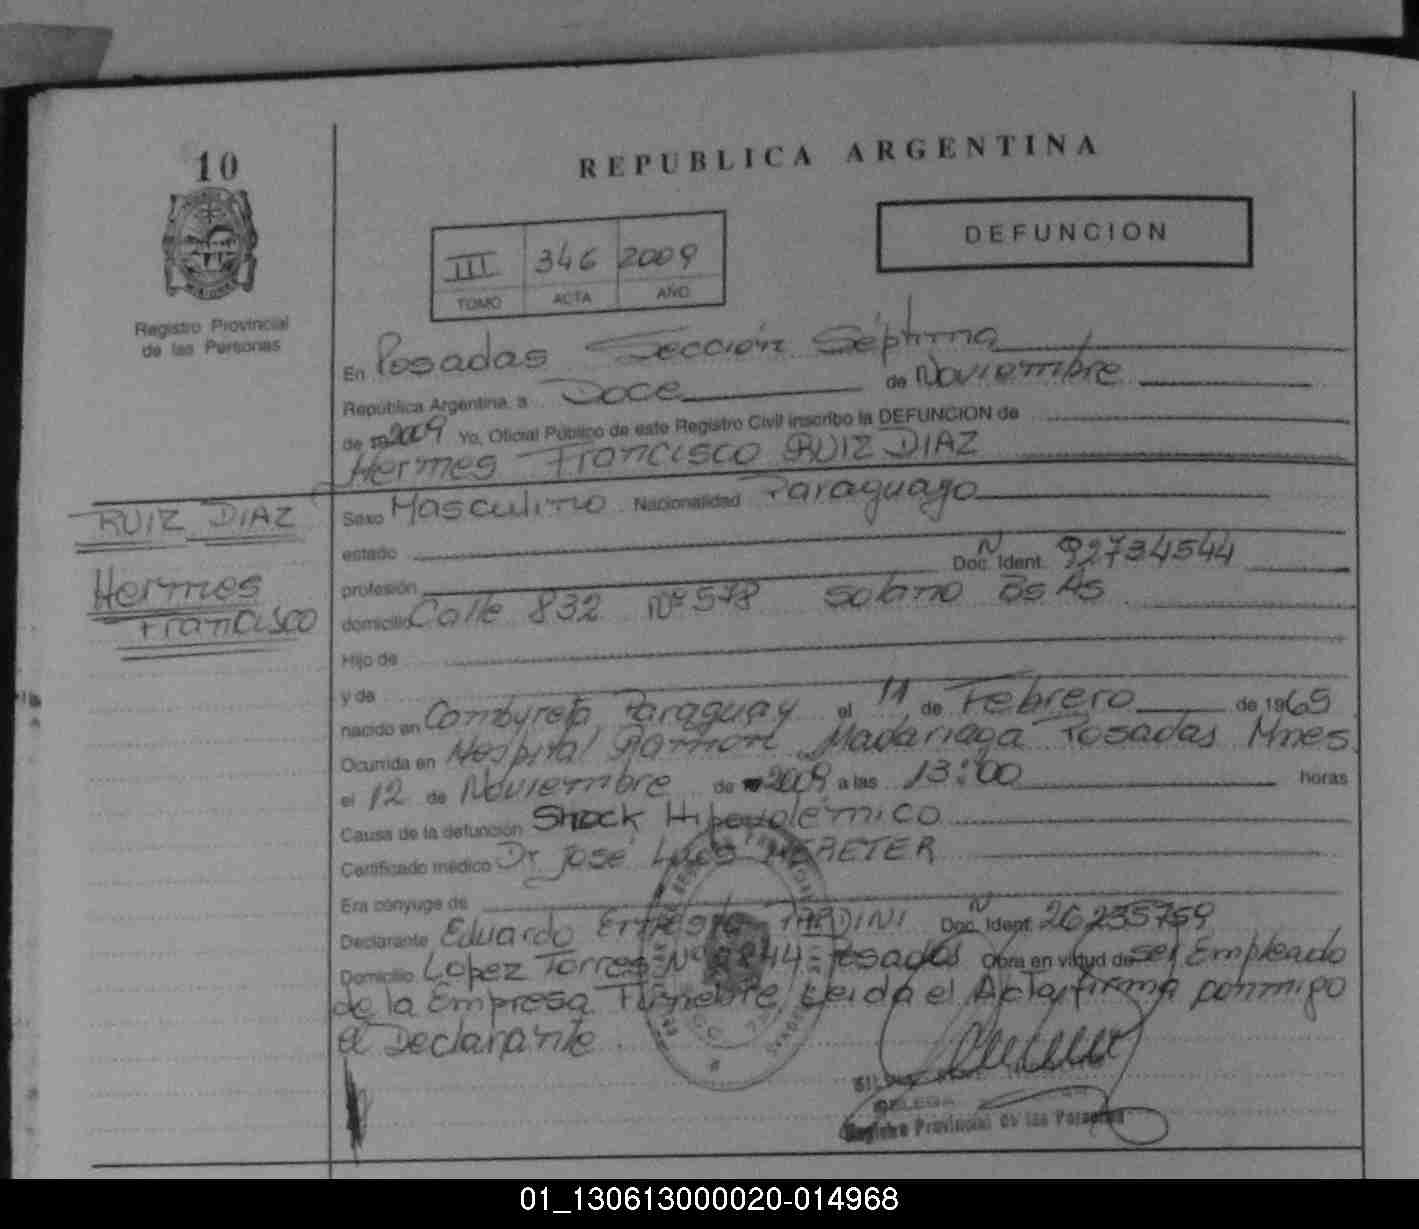 10
REPUBLICA ARGENTINA
DEFUNCION
III 346 2009
TOMO ACTA AÑO
Registro Provincial
de las Personas
En Posadas Sección Séptima
República Argentina, a Doce de Noviembre
de 2009 Yo, Oficial Público de este Registro Civil inscribo la DEFUNCION de
Hermes Francisco RUIZ DIAZ
RUIZ DIAZ
Hermes
Francisco
Sexo Masculino Nacionalidad Paraguayo
estado
profesión Doc. Ident. Nº 92734544
domicilio Calle 832 Nº 578 Solano Bs As
Hijo de
y de
nacido en Paraguay el 11 de Febrero de 1969
Ocurrida en Hospital Ramon Madariaga Posadas Mnes
el 12 de Noviembre de 2009 a las 13:00 horas
Causa de la defunción Shock Hipovolémico
Certificado médico Dr José Luis
Era cónyuge de
Declarante Eduardo Ernesto TARDINI Doc. Ident. N 26235759
Domicilio Lopez Torres Nº Posadas Obra en virtud de ser Empleado
de la Empresa Funebre Leida el Acta, firma conmigo
el Declarante
Registro Provincial de las Personas
01_130613000020-014968